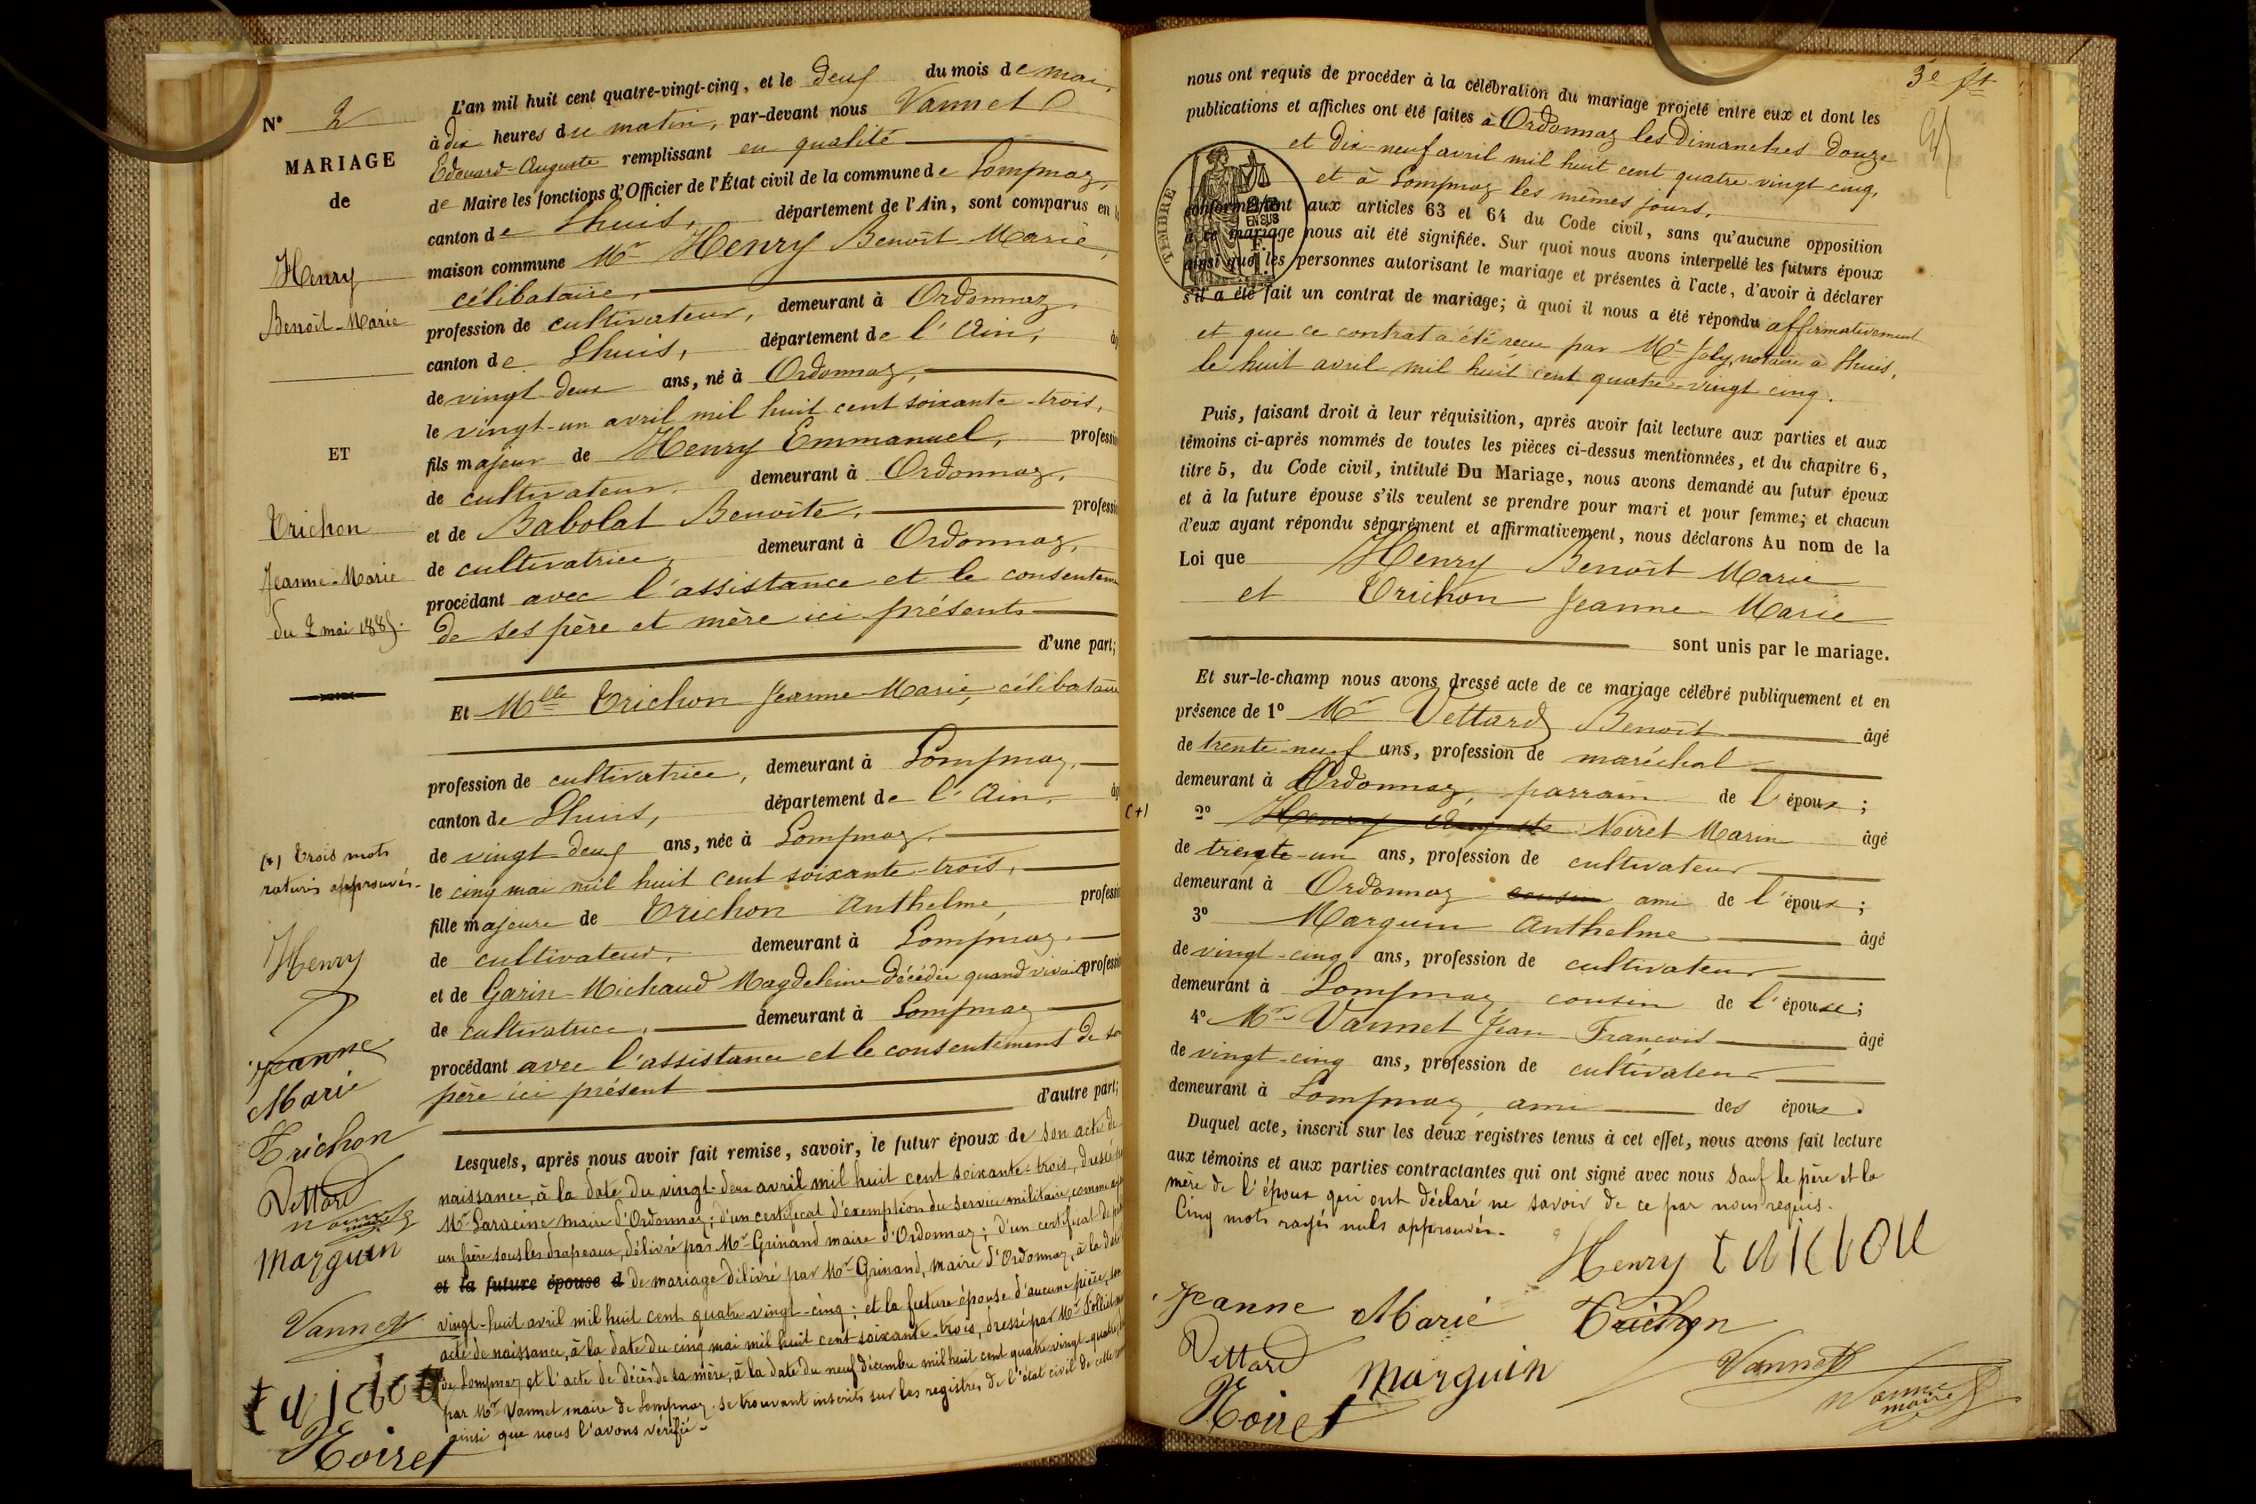 N° 2
MARIAGE
de
Henry
Benoît-Marie
ET
Trichon
Jeanne-Marie
du 2 mai 1885.
(+) Trois mots
raturés approuvés.
Henry
Jeanne
Marie
Trichon
Vettard
Vannet
maire
Marguin
Vannet
Noiret
L'an mil huit cent quatre-vingt-cinq, et le deux du mois de mai,
à dix heures du matin, par-devant nous Vannet
Edouard-Auguste remplissant en qualité
de Maire les fonctions d'Officier de l'État civil de la commune de Lompnaz,
canton de Lhuis, département de l'Ain, sont comparus en la
maison commune Mr Henry Benoît-Marie,
célibataire,
profession de cultivateur, demeurant à Ordonnaz,
canton de Lhuis, département de l'Ain, âgé
de vingt-deux ans, né à Ordonnaz,
le vingt-un avril mil huit cent soixante-trois,
fils majeur de Henry Emmanuel, profession
de cultivateur, demeurant à Ordonnaz,
et de Babolat Benoîte, profession
de cultivatrice, demeurant à Ordonnaz,
procédant avec l'assistance et le consentement
de ses père et mère ici présents
d'une part;
Et Mlle Trichon Jeanne-Marie, célibataire
profession de cultivatrice, demeurant à Lompnaz,
canton de Lhuis, département de l'Ain, âgé
de vingt-deux ans, née à Lompnaz,
le cinq mai mil huit cent soixante-trois,
fille majeure de Trichon Anthelme, profession
de cultivateur, demeurant à Lompnaz,
et de Garin-Michaud Magdeleine décédée quand vivait profession
de cultivatrice, demeurant à Lompnaz
procédant avec l'assistance et le consentement de son
père ici présent
d'autre part;
Lesquels, après nous avoir fait remise, savoir, le futur époux de son acte de
naissance, à la date du vingt-deux avril mil huit cent soixante-trois, dressé par
Mr Saracine maire d'Ordonnaz; d'un certificat d'exemption du service militaire, comme ayant
un frère sous les drapeaux, délivré par Mr Grinand maire d'Ordonnaz; d'un certificat de
et la future épouse d de mariage délivré par Mr Grinand, maire d'Ordonnaz, à la date
vingt-huit avril mil huit cent quatre vingt-cinq; et la future épouse d'aucune pièce, son
acte de naissance, à la date du cinq mai mil huit cent soixante-trois, dressé par Mr
de Lompnaz et l'acte de décès de sa mère, à la date du neuf décembre mil huit cent quatre vingt-quatre,
par Mr Vannet maire de Lompnaz se trouvant inscrits sur les registres de l'état civil de cette
ainsi que nous l'avons vérifié.
3e
nous ont requis de procéder à la célébration du mariage projeté entre eux et dont les
publications et affiches ont été faites à Ordonnaz les Dimanches douze
et dix-neuf avril mil huit cent quatre vingt cinq,
et à Lompnaz les mêmes jours,
TIMBRE
2/10
EN SUS
conformément aux articles 63 et 64 du Code civil, sans qu'aucune opposition
à ce mariage nous ait été signifiée. Sur quoi nous avons interpellé les futurs époux
ainsi que les personnes autorisant le mariage et présentes à l'acte, d'avoir à déclarer
s'il a été fait un contrat de mariage; à quoi il nous a été répondu affirmativement
et que ce contrat a été reçu par Me Joly, notaire à Lhuis,
le huit avril mil huit cent quatre-vingt cinq.
Puis, faisant droit à leur réquisition, après avoir fait lecture aux parties et aux
témoins ci-après nommés de toutes les pièces ci-dessus mentionnées, et du chapitre 6,
titre 5, du Code civil, intitulé Du Mariage, nous avons demandé au futur époux
et à la future épouse s'ils veulent se prendre pour mari et pour femme; et chacun
d'eux ayant répondu séparément et affirmativement, nous déclarons Au nom de la
Loi que Henry Benoît Marie
et Trichon Jeanne-Marie
sont unis par le mariage.
Et sur-le-champ nous avons dressé acte de ce mariage célébré publiquement et en
présence de 1° Mr Vettard Benoît âgé
de trente-neuf ans, profession de maréchal
demeurant à Ordonnaz, parrain de l'époux;
(+) 2° Henry Auguste Noiret Marin âgé
de trente-un ans, profession de cultivateur
demeurant à Ordonnaz cousin ami de l'époux;
3° Marguin Anthelme âgé
de vingt-cinq ans, profession de cultivateur
demeurant à Lompnaz cousin de l'épouse;
4° Mr Vannet Jean-François âgé
de vingt-cinq ans, profession de cultivateur
demeurant à Lompnaz, ami des époux.
Duquel acte, inscrit sur les deux registres tenus à cet effet, nous avons fait lecture
aux témoins et aux parties contractantes qui ont signé avec nous sauf le père et la
mère de l'époux qui ont déclaré ne savoir de ce par nous requis.
Cinq mots rayés nuls approuvés.
Henry
Jeanne Marie Trichon
Vettard Marguin Vannet
Noiret Vannet
maire